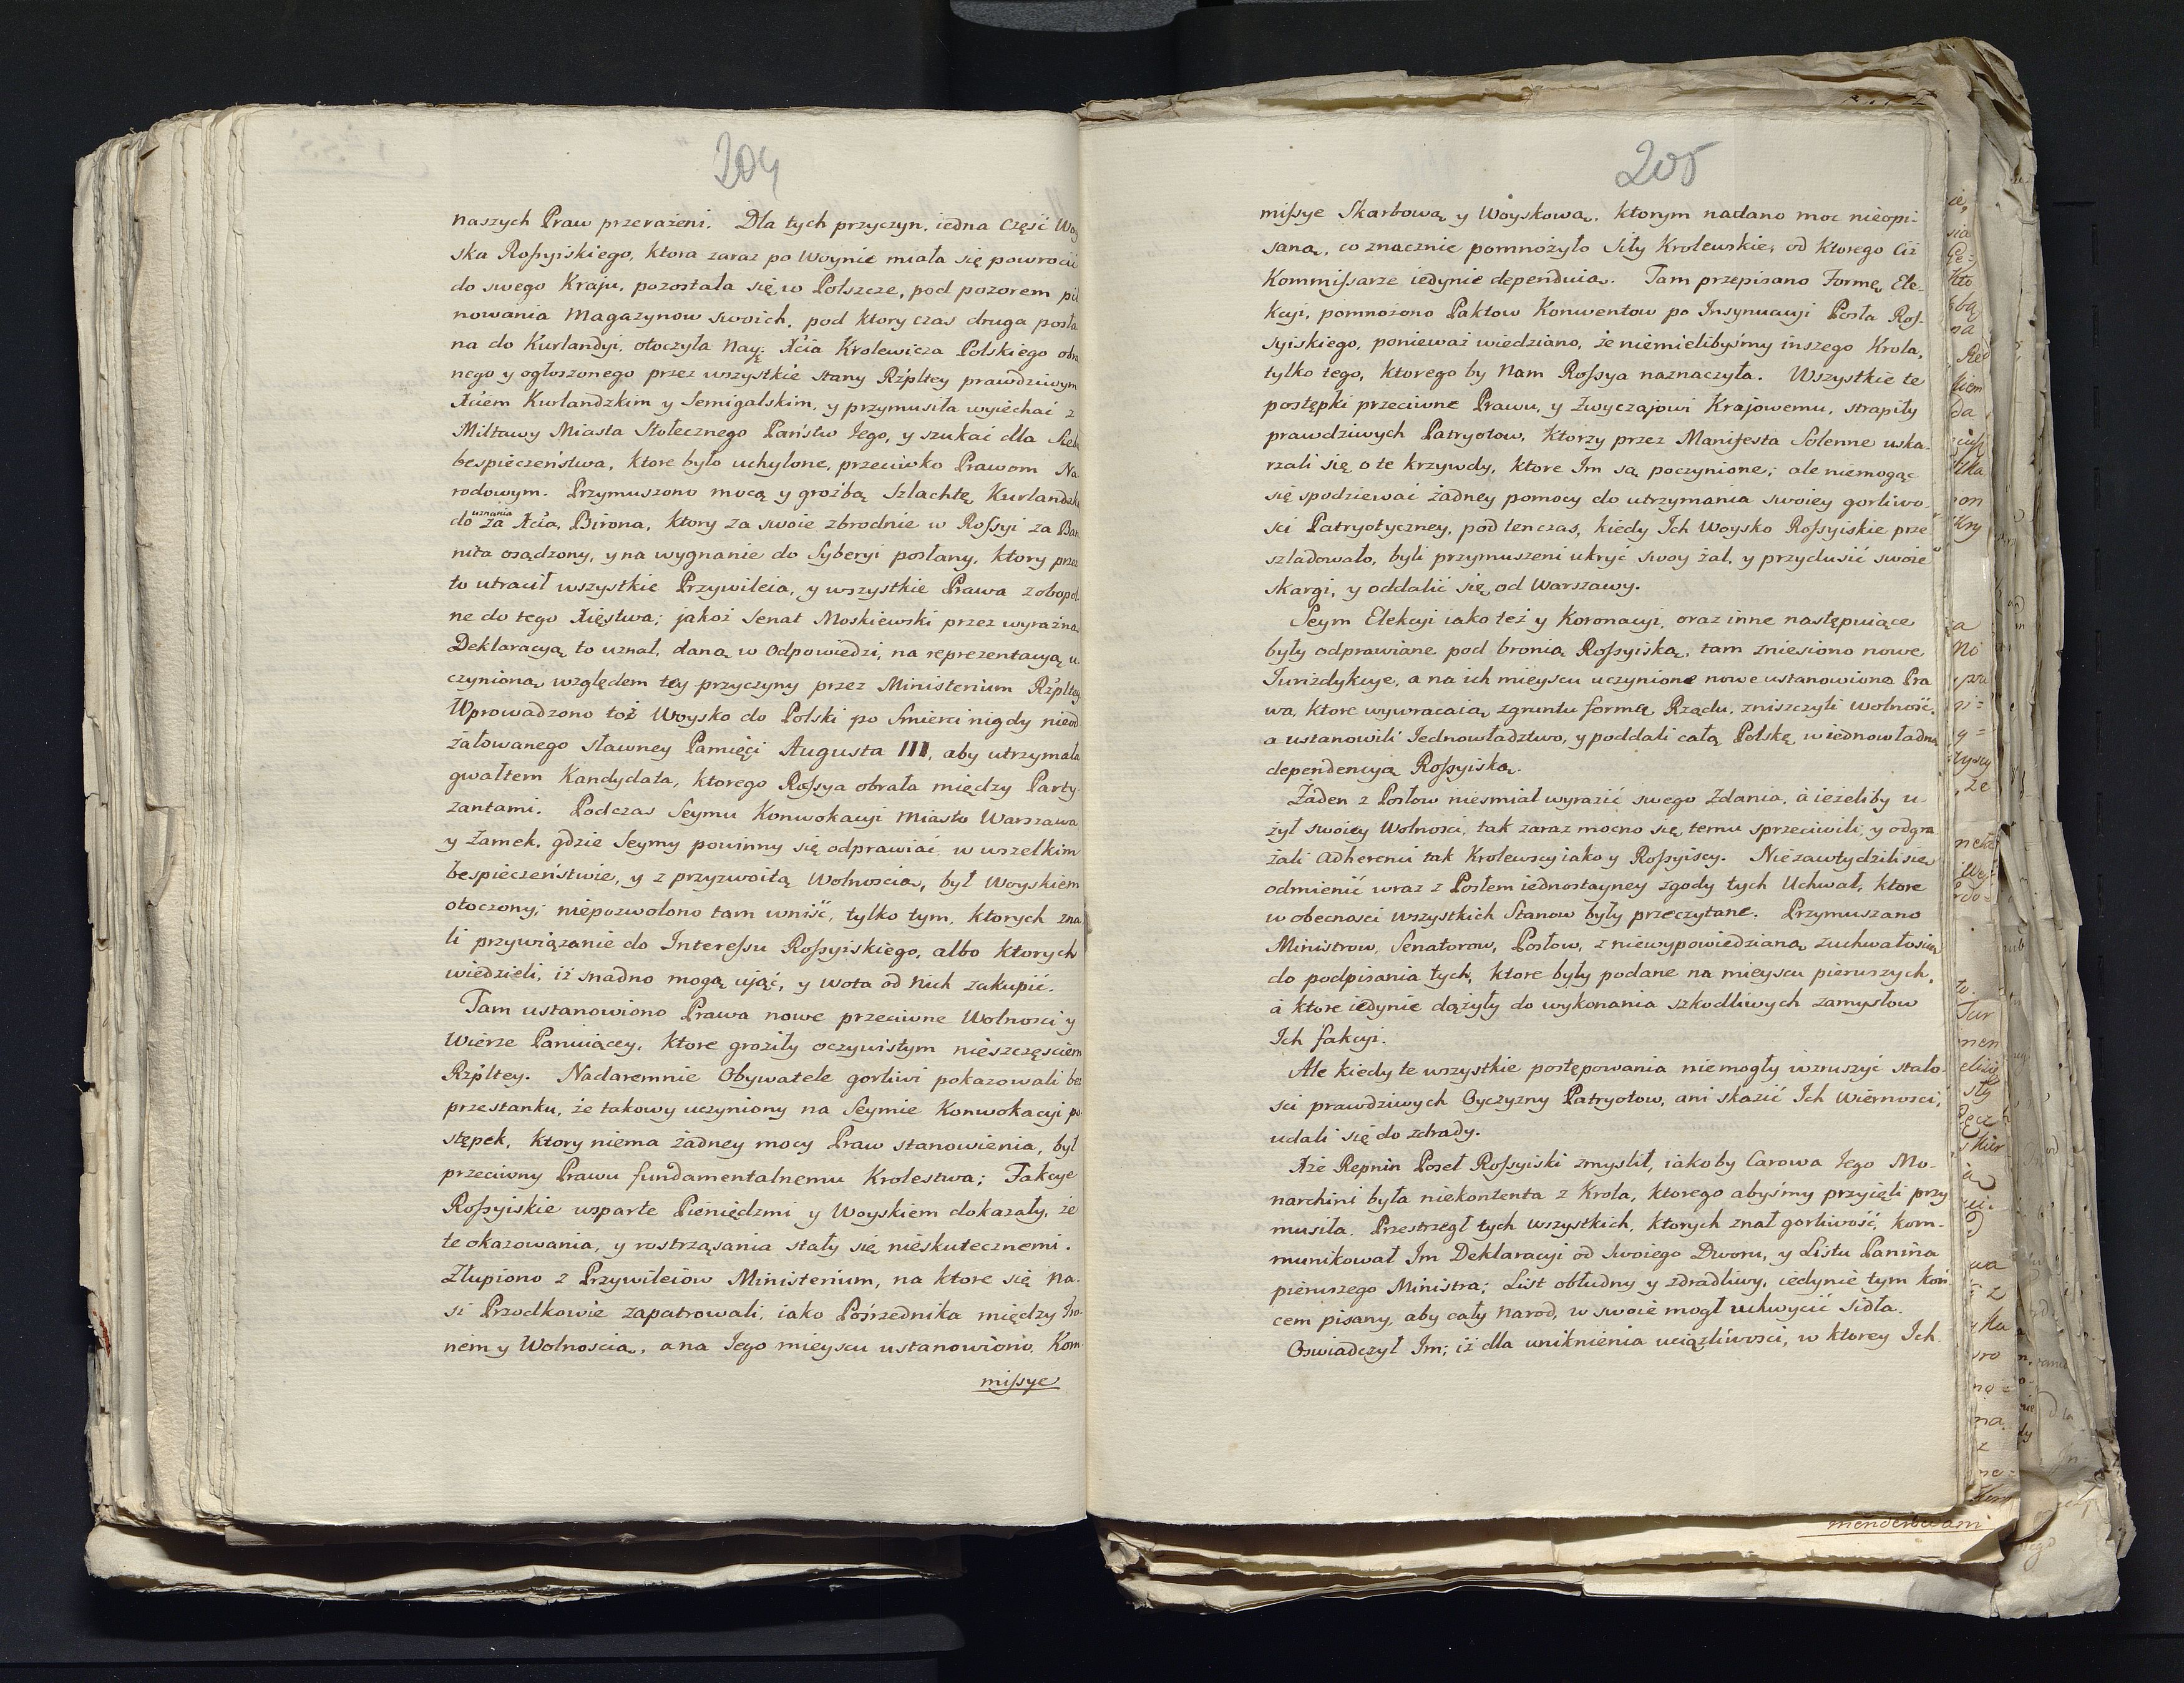 204
naszych Praw przerażeni. Dla tych przyczyn, iedna Część Woy
ska Roſsyiskiego, ktora zaraz po Woynie miała się powrocić
do swego Kraju, pozostała się w Polszcze, pod pozorem pil
nowania Magazynow swoich, pod ktory czas druga posła
na do Kurlandyi, otoczyła Nay: Xcia Krolewicza Polskiego obra
nego y ogłoszonego przez wszystkie stany Rzpltey prawdziwym
Xciem Kurlandzkim y Semigalskim, y przymusiła wyiechać z
Miltawy Miasta Stołecznego Państw Jego, y szukać dla Sieb
bespieczeństwa, ktore było uchylone, przeciwko Prawom Na
rodowym. Przymuszono mocą y groźbą Szlachtę Kurlandzką
do uznania za Xcia, Birona, ktory za swoie zbrodnie w Roſsyi za Ban
nita osądzony, y na wygnanie do Syberyi posłany, ktory przez
to utracił wszystkie Przywileia, y wszystkie Prawa zobopol
ne do tego Xięstwa; jakoż Senat Moskiewski przez wyraźną
Deklaracyą to uznał, daną w Odpowiedzi, na reprezentacyą u
czynioną względem tey przyczyny przez Ministerium Rzpltey
Wprowadzono toż Woysko do Polski po Smierci nigdy nieod
żałowanego sławney Pamięci Augusta III, aby utrzymała
gwałtem Kandydata, ktorego Roſsya obrała między Party-
zantami. Podczas Seymu Konwokacyi Miasto Warszawa
y Zamek, gdzie Seymy powinny się odprawiać w wszelkim
bespieczeństwie, y z przyzwoitą Wolnoscią, był Woyskiem
otoczony; niepozwolono tam wniść, tylko tym, ktorych zna
li przywiązanie do Intereſsu Roſsyiskiego, albo ktorych
wiedzieli, iż snadno mogą ująć, y wota od nich zakupić.
Tam ustanowiono Prawa nowe przeciwne Wolnosci y
Wierze Panuiącey, ktore groziły oczywistym nieszczęsciem
Rzpltey. Nadaremnie Obywatele gorliwi pokazowali bez
przestanku, że takowy uczyniony na Seymie Konwokacyi po
stępek, ktory niema żadney mocy Praw stanowienia, był
przeciwny Prawu fundamentalnemu Krolestwa; Fakcye
Roſsyiskie wsparte Pieniędzmi y Woyskiem dokazały, że
te okazowania, y rostrząsania stały się nieskutecznemi.
Złupiono z Przywileiow Ministerium, na ktore się Na-
si Przodkowie zapatrowali, iako Pośrzednika między Tro-
nem y Wolnoscią, a na Jego mieyscu ustanowiono Kom-
miſsye
205
miſsye Skarbową y Woyskową, ktorym nadano moc nieopi-
saną, co znacznie pomnożyło Siły Krolewskie, od ktorego Ciż
Kommiſsarze iedynie dependuią. Tam przepisano Formę Ele-
kcyi, pomnożono Paktow Konwentow po Insynuacyi Posła Roſ-
syiskiego, ponieważ wiedziano, że niemielibyśmy inszego Krola,
tylko tego, ktorego by Nam Roſsya naznaczyła. Wszystkie te
postępki przeciwne Prawu, y Zwyczajowi Krajowemu, strapiły
prawdziwych Patryotow, Ktorzy przez Manifesta Solenne uska-
rzali się o te krzywdy, ktore Im są poczynione; ale niemogąc
się spodziewać żadney pomocy do utrzymania swoiey gorliwo-
sci Patryotyczney, pod tenczas, kiedy Ich Woysko Roſsyiskie prze
szladowało, byli przymuszeni ukryć swoy żal, y przydusić swoie
skargi, y oddalić się od Warszawy.
Seym Elekcyi iako też y Koronacyi, oraz inne następuiące
były odprawiane pod bronią Roſsyiską, tam zniesiono nowe
Jurizdykcye, a na ich mieyscu uczynione nowe ustanowiono Pra
wa, ktore wywracaią zgruntu formę Rządu, zniszczyli wolność,
a ustanowili Jednowładztwo, y poddali całą Polskę w iednowładną
dependencyą Roſsyiską.
Żaden z Posłow niesmiał wyrazić swego Zdania, à ieżeliby u-
żył swoiey Wolnosci, tak zaraz mocno się temu sprzeciwili, y odgra
żali Adherenci tak Krolewscy iako y Roſsyiscy. Niezawstydzili się
odmienić wraz z Posłem iednostayney zgody tych Uchwał, ktore
w obecnosci wszystkich Stanow były przeczytane. Przymuszano
Ministrow, Senatorow, Posłow, z niewypowiedzianą zuchwałoscią
do podpisania tych, ktore były podane na mieyscu pierwszych,
à ktore iedynie dążyły do wykonania szkodliwych zamysłow
Ich fakcyi.
Ale kiedy te wszystkie postępowania niemogły wzruszyć stało-
sci prawdziwych Oyczyzny Patryotow, ani skazić Ich Wiernosci,
udali się do zdrady.
Xże Repnin Poseł Roſsyiski zmyslił, iakoby Carowa Jego Mo-
narchini była niekontenta z Krola, ktorego abyśmy przyięli przy
musiła. Przestrzegł tych wszystkich, ktorych znał gorliwość, kom-
munikował Im Deklaracyi od Swoiego Dworu, y Listu Panina
pierwszego Ministra; List obłudny y zdradliwy, iedynie tym koń
cem pisany, aby cały Narod, w swoie mogł uchwycić Sidła.
Oswiadczył Im; iż dla uniknienia uciążliwosci, w ktorey Ich